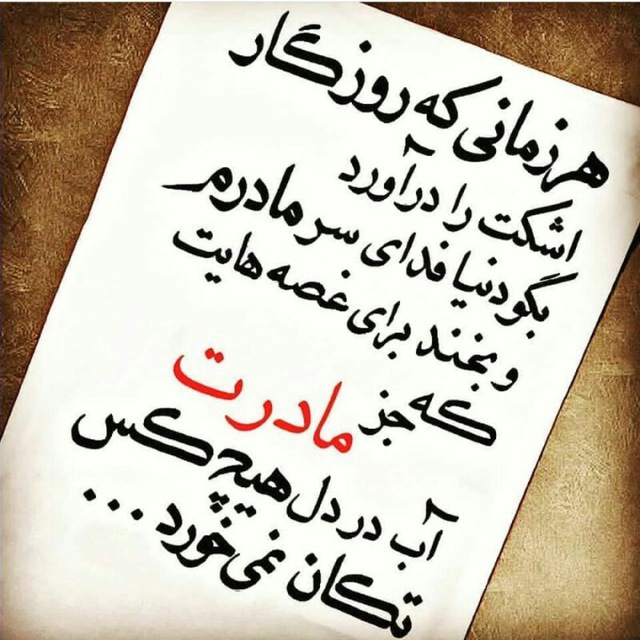 هر زمانی که روزگار
اشکت را درآورد
بگو دنیا فدای سر مادرم
و بخند برای غصه هایت
که جز مادرت
آب در دل هیچ کس
تکان نمی‌خورد ...